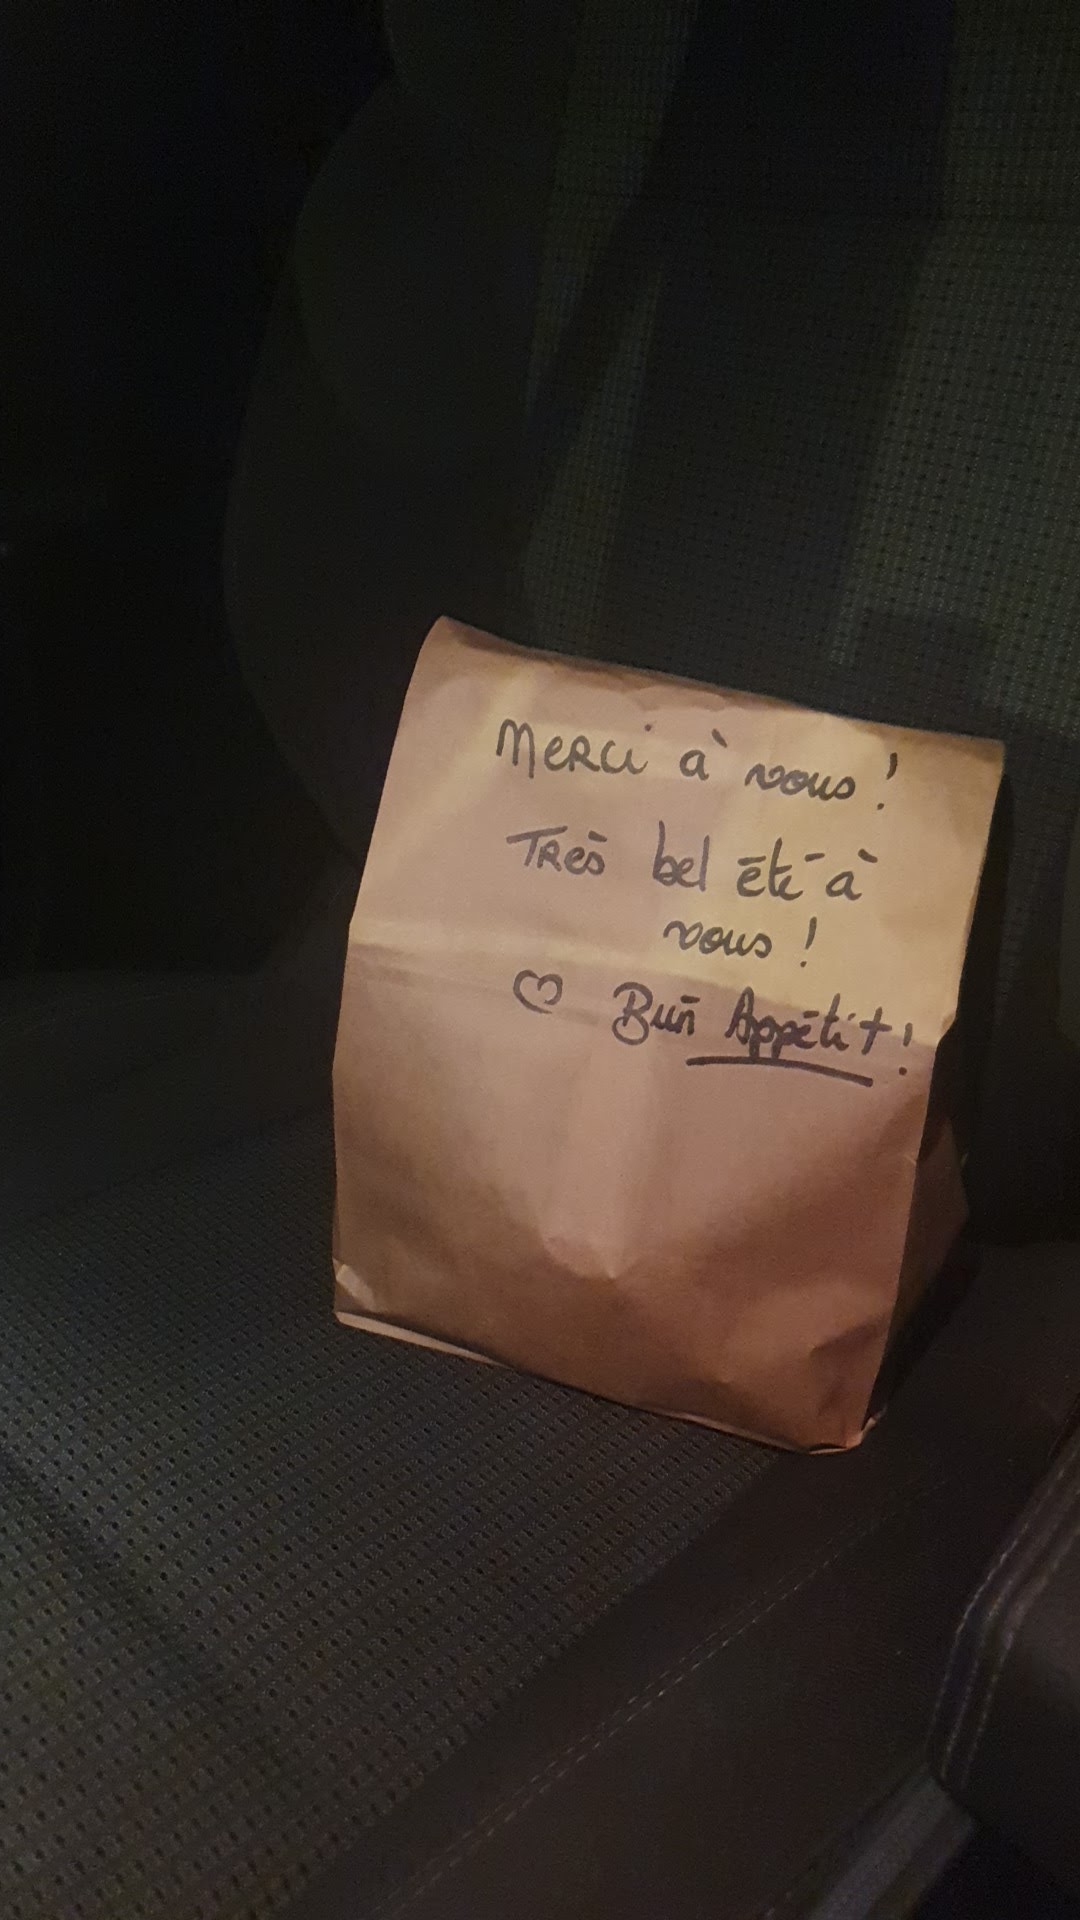 Merci à vous !
Très bel été à
vous !
♡ Bun Appétit !